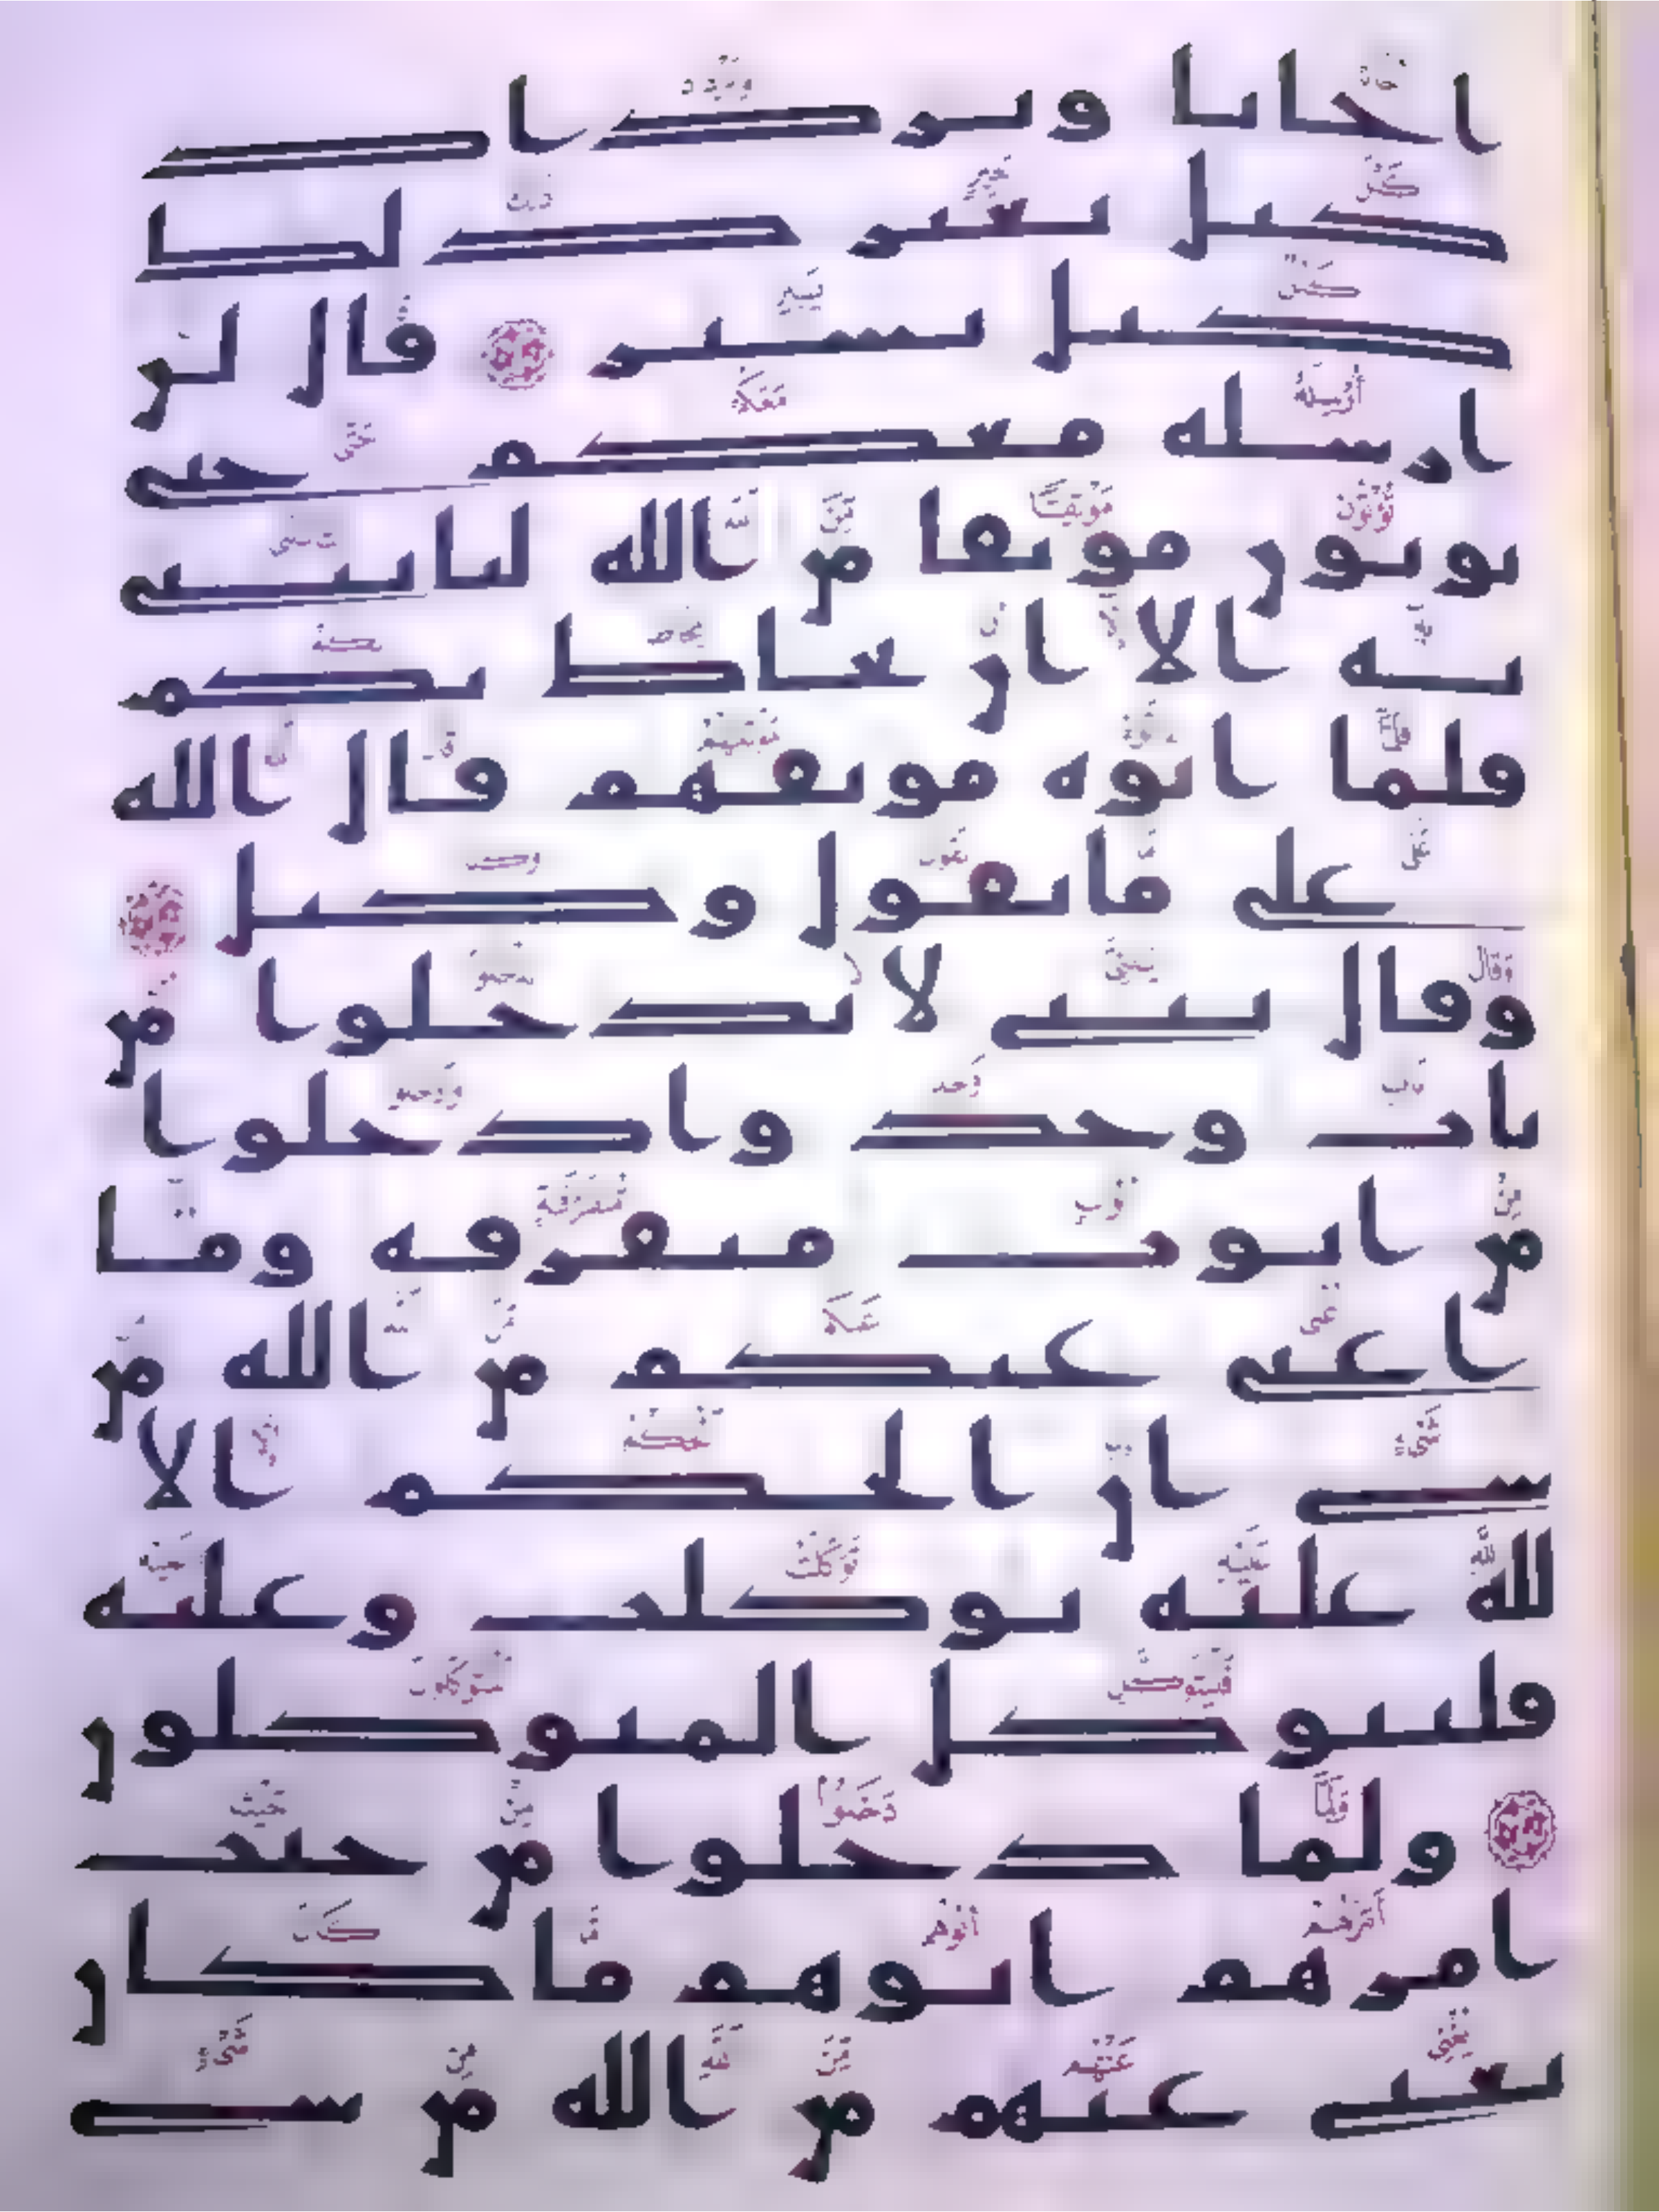 اخانا ونزداد
كيل بعير ذلك
كيل يسير قال لن
ارسله معكم حتى
توتون موثقا من الله لتاتننى
به الا ان يحاط بكم
فلما اتوه موثقهم قال الله
على ما نقول وكيل
وقال يبنى لا تدخلوا من
باب وحد وادخلوا
من ابوب متفرقه وما
اغنى عنكم من الله من
شى ان الحكم الا
لله عليه توكلت وعليه
فليتوكل المتوكلون
ولما دخلوا من حيث
امرهم ابوهم ما كان
يغنى عنهم من الله من شى